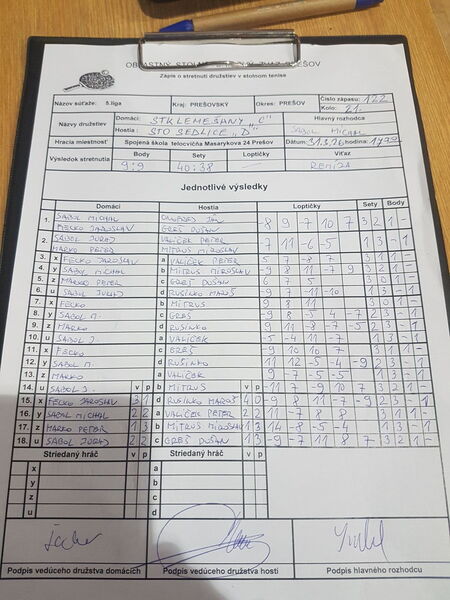 OBLASTNÝ STOLNOTENISOVÝ ZVÄZ PREŠOV
Zápis o stretnutí družstiev v stolnom tenise
Názov súťaže: 5.liga Kraj: PREŠOVSKÝ Okres: PREŠOV Číslo zápasu: 122
Kolo: 21.
Názvy družstiev Domáci: STK LEMEŠANY "C" Hlavný rozhodca
Hostia: STO SEDLICE "D" SABOL MICHAL
Hracia miestnosť Spojená škola telocvičňa Masarykova 24 Prešov Dátum: 31.3.26 hodina:
Výsledok stretnutia Body Sety Loptičky Víťaz
9:9 40:38 REMÍZA
Jednotlivé výsledky
Domáci Hostia Loptičky Sety Body
1. SABOL MICHAL -8 9 -7 10 7 3 2 1 -
FECKO JAROSLAV GREŠ DUŠAN
2. SABOL JURAJ VALÍČEK PETER -7 11 -6 -5 1 3 - 1
MARKO PETER MITRUS MIROSLAV
3. x FECKO JAROSLAV a VALÍČEK PETER 5 7 8 3 0 1 -
4. y SABOL MICHAL b MITRUS MIROSLAV -9 8 11 -7 9 3 2 1 -
5. z MARKO PETER c GREŠ DUŠAN 6 7 5 3 0 1 -
6. u SABOL JURAJ d RUŠINKO MAROŠ -9 7 -11 -10 1 3 - 1
7. x FECKO b MITRUS 9 8 11 3 0 1 -
8. y SABOL M. c GREŠ -8 9 5 -4 -7 2 3 - 1
9. z MARKO d RUŠINKO 9 11 -8 -7 -5 2 3 - 1
10. u SABOL J. a VALÍČEK -5 -4 11 -7 1 3 - 1
11. x FECKO c GREŠ -9 10 10 7 3 1 1 -
12. y SABOL M. d RUŠINKO 11 -12 5 -4 -9 2 3 - 1
13. z MARKO a VALÍČEK 9 -7 -5 -5 1 3 - 1
14. u SABOL J. v p b MITRUS v p -11 7 -9 10 7 3 2 1 -
15. x FECKO JAROSLAV 3 1 d RUŠINKO MAROŠ 4 0 -9 8 11 -7 -9 2 3 - 1
16. y SABOL MICHAL 2 2 a VALÍČEK PETER 2 2 11 -7 8 8 3 1 1 -
17. z MARKO PETER 1 3 b MITRUS MIROSLAV 1 3 14 -8 -5 -4 1 3 - 1
18. u SABOL JURAJ 2 2 c GREŠ DUŠAN 1 3 -9 -7 11 8 7 3 2 1 -
Striedaný hráč v p Striedaný hráč v p
x a
y b
z c
u d
Podpis vedúceho družstva domácich Podpis vedúceho družstva hostí Podpis hlavného rozhodcu